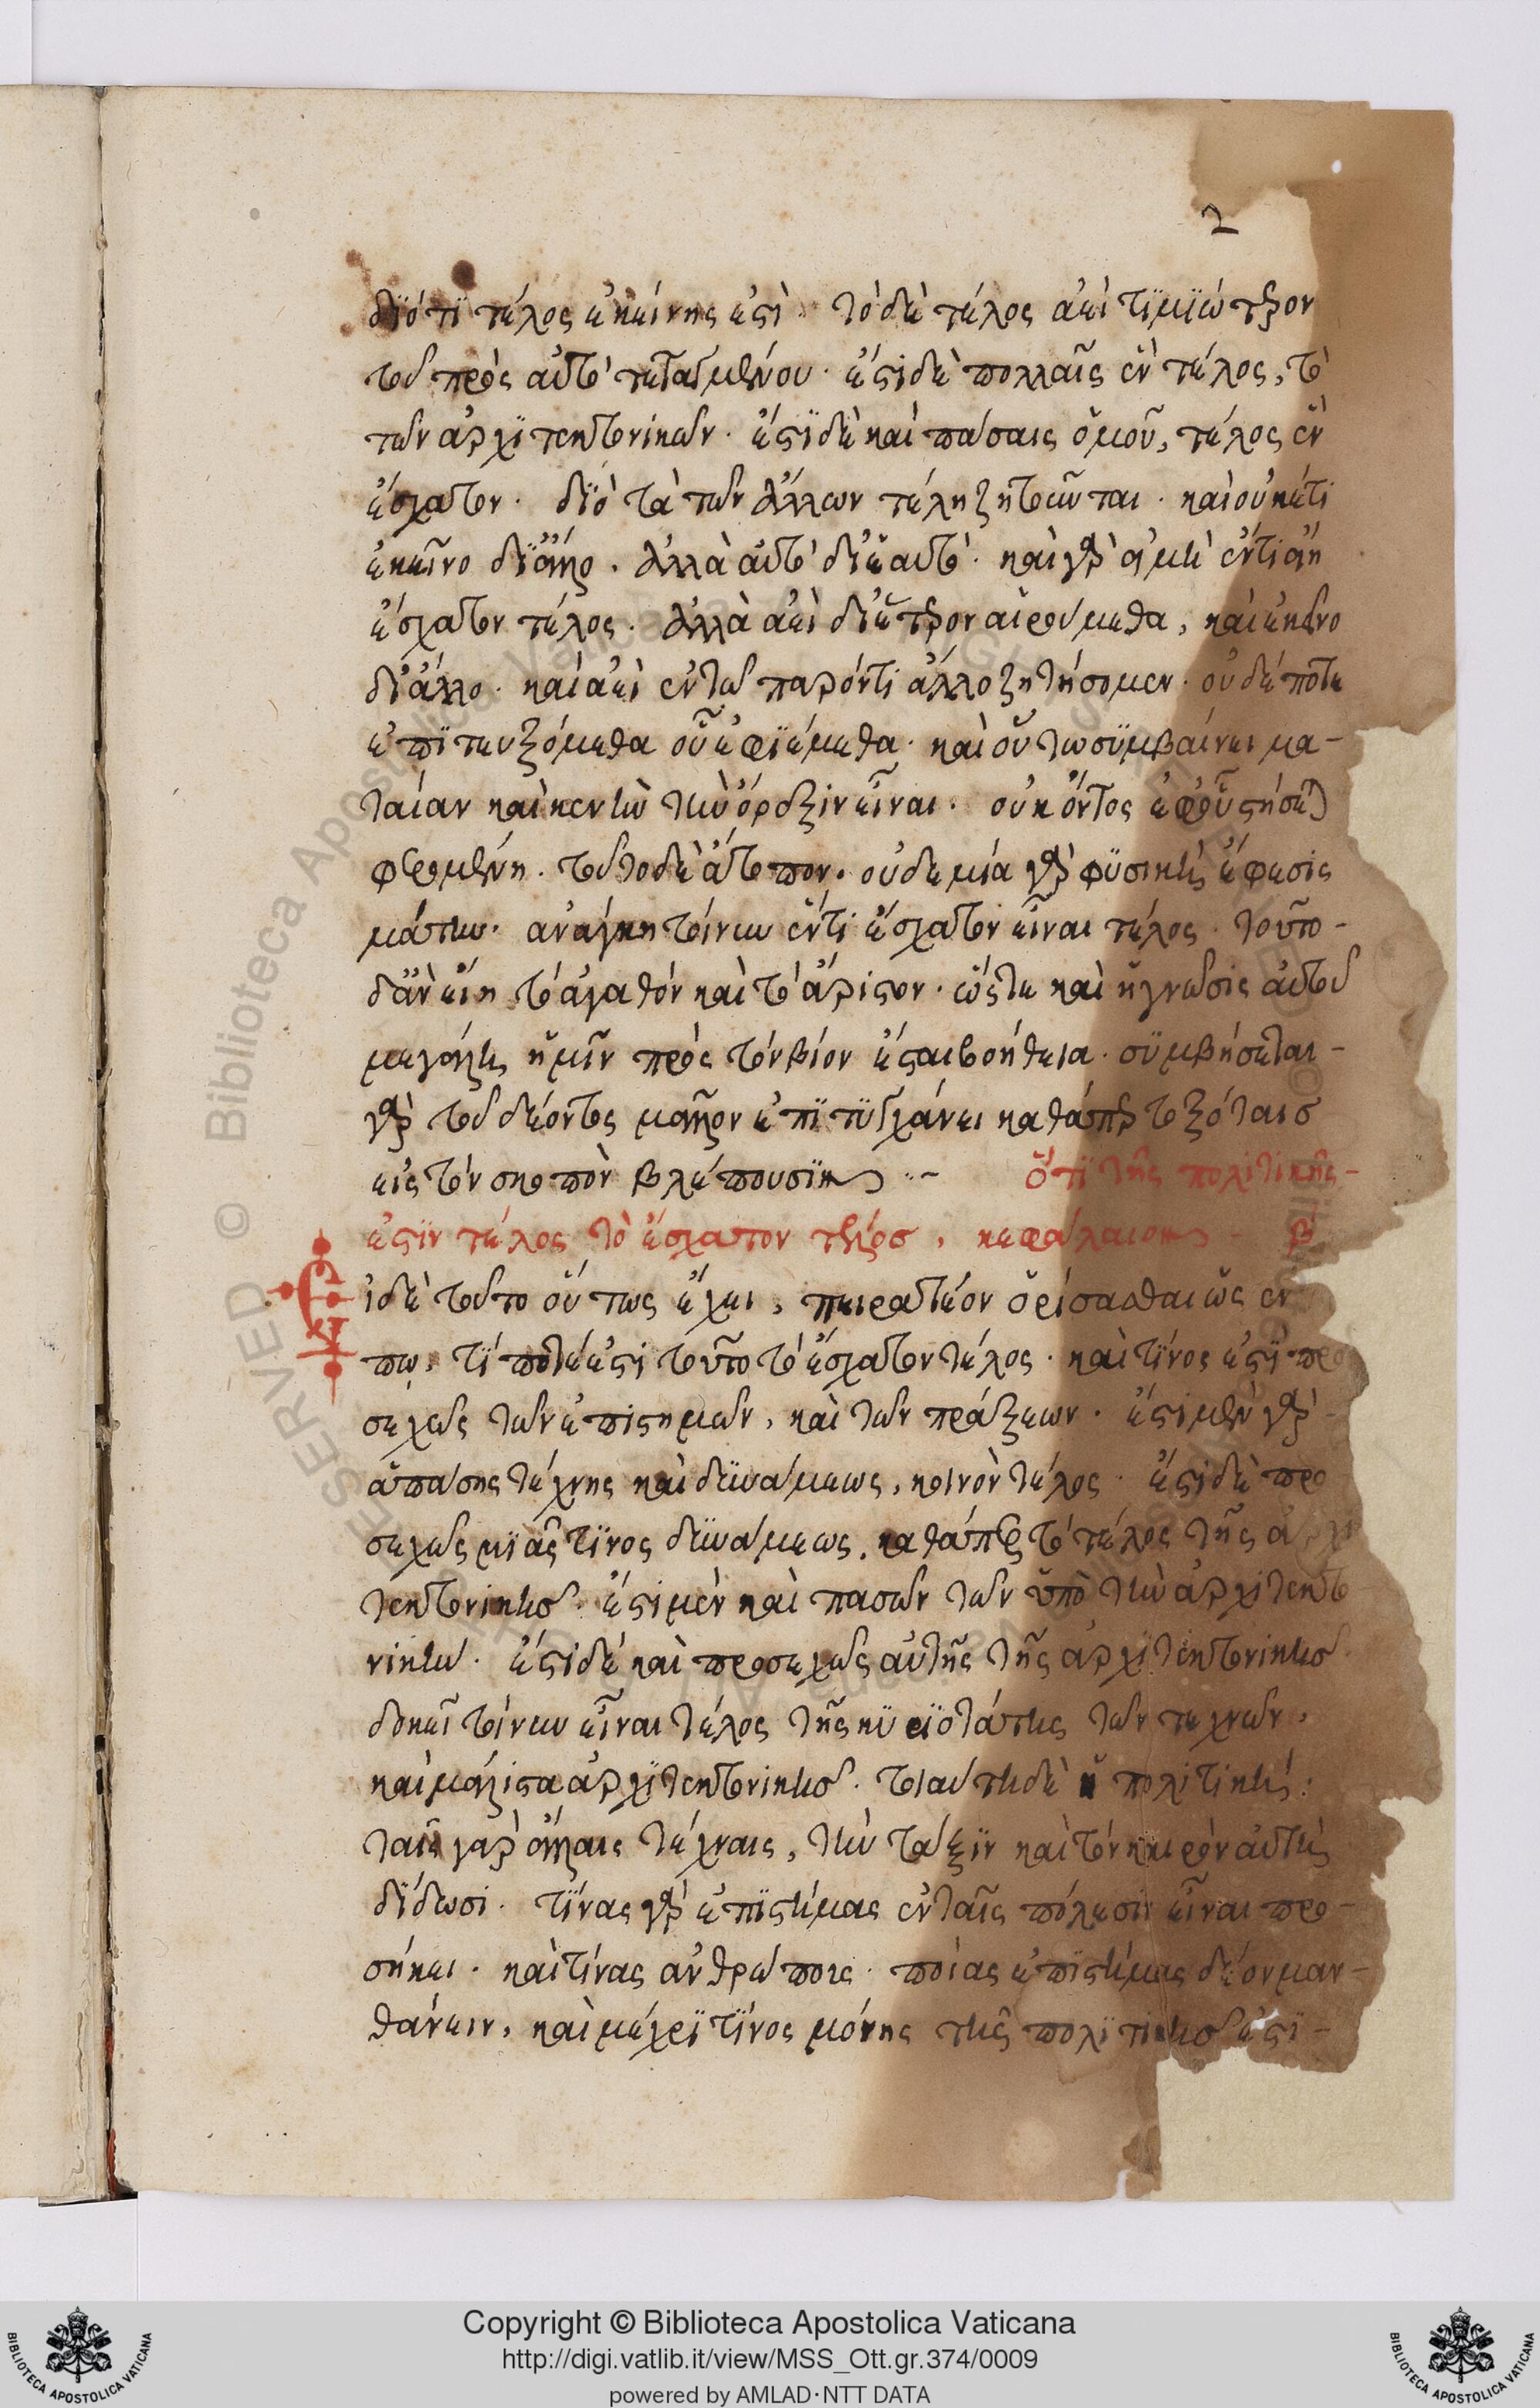 2
διότι τέλος ἐκείνης ἐστὶ· τὸ δὲ τέλος ἀεὶ τιμιώτερον
τοῦ πρὸς αὐτὸ τεταγμένου· ἔστι δὲ πολλαῖς ἓν τέλος, τὸ
τῶν ἀρχιτεκτονικῶν· ἔστι δὲ καὶ πάσαις ὁμοῦ, τέλος ἓν
ἔσχατον· διὸ τὰ τῶν ἄλλων τέλη ζητοῦνται· καὶ οὐκέτι
ἐκεῖνο δι' ἄλλο· ἀλλὰ αὐτὸ δι' ἑαυτὸ· καὶ γὰρ εἰ μὴ ἔν τι εἴη
ἔσχατον τέλος· ἀλλὰ ἀεὶ δι' ἕτερον αἱρούμεθα, καὶ ἐκεῖνο
δι' ἄλλο· καὶ ἀεὶ ἐν τῶ παρόντι ἄλλο ζητήσομεν· οὐδέποτε
ἐπιτευξόμεθα οὗ ἐφιέμεθα· καὶ οὕτω συμβαίνει μα-
ταίαν καὶ κενὴν τὴν ὄρεξιν εἶναι· οὐκ ὄντος ἐφ' οὗ στήσεται
φερομένη· τοῦτο δὲ ἄτοπον· οὐδεμία γὰρ φυσικὴ ἔφεσις
μάτην· ἀνάγκη τοίνυν ἔν τι ἔσχατον εἶναι τέλος· τοῦτο-
δ' ἂν εἴη τὸ ἀγαθόν καὶ τὸ ἄριστον· ὥστε καὶ ἡ γνῶσις αὐτοῦ
μεγάλη ἡμῖν πρὸς τὸν βίον ἔσται βοήθεια· συμβήσεται-
γὰρ τοῦ δέοντος μᾶλλον ἐπιτυγχάνει καθάπερ τοξόταις
εἰς τὸν σκοπὸν βλέπουσιν ·· ~ ὅτι τῆς πολιτικῆς-
ἐστὶν τέλος τὸ ἔσχατον τέλος, κεφάλαιον β
εἰ δὲ τοῦτο οὕτως ἔχει, πειρατέον ὁρίσασθαι ὡς ἐν
τύπῳ, τί ποτέ ἐστι τοῦτο τὸ ἔσχατον τέλος· καὶ τίνος ἐστὶ προ
σεχῶς τῶν ἐπιστημῶν, καὶ τῶν πράξεων· ἔστι μὲν γὰρ-
ἁπάσης τέχνης καὶ δυνάμεως, κοινὸν τέλος· ἔστι δὲ προ
σεχῶς μιᾶς τινος δυνάμεως, καθάπερ τὸ τέλος τῆς ἀρχι
τεκτονικῆς· ἔστι μὲν καὶ πασῶν τῶν ὑπὸ τὴν ἀρχιτεκτο
νικήν· ἔστι δέ καὶ προσεχῶς αὐτῆς τῆς ἀρχιτεκτονικῆς·
δοκεῖ τοίνυν εἶναι τέλος τῆς κυριωτάτης τῶν τεχνῶν,
καὶ μάλιστα ἀρχιτεκτονικῆς· τοιαύτη δὲ ἡ πολιτική:
ταῖς γὰρ ἄλλαις τέχναις, τὴν τάξιν καὶ τὸν καιρὸν αὐτὴ
δίδωσι· τίνας γὰρ ἐπιστήμας ἐν ταῖς πόλεσιν εἶναι προ-
σήκει· καὶ τίνας ἀνθρώποις· ποίας ἐπιστήμας δέον μαν-
θάνειν, καὶ μέχρι τίνος μόνης τῆς πολιτικῆς ἐστὶ-
Copyright © Biblioteca Apostolica Vaticana
http://digi.vatlib.it/view/MSS_Ott.gr.374/0009
powered by AMLAD·NTT DATA